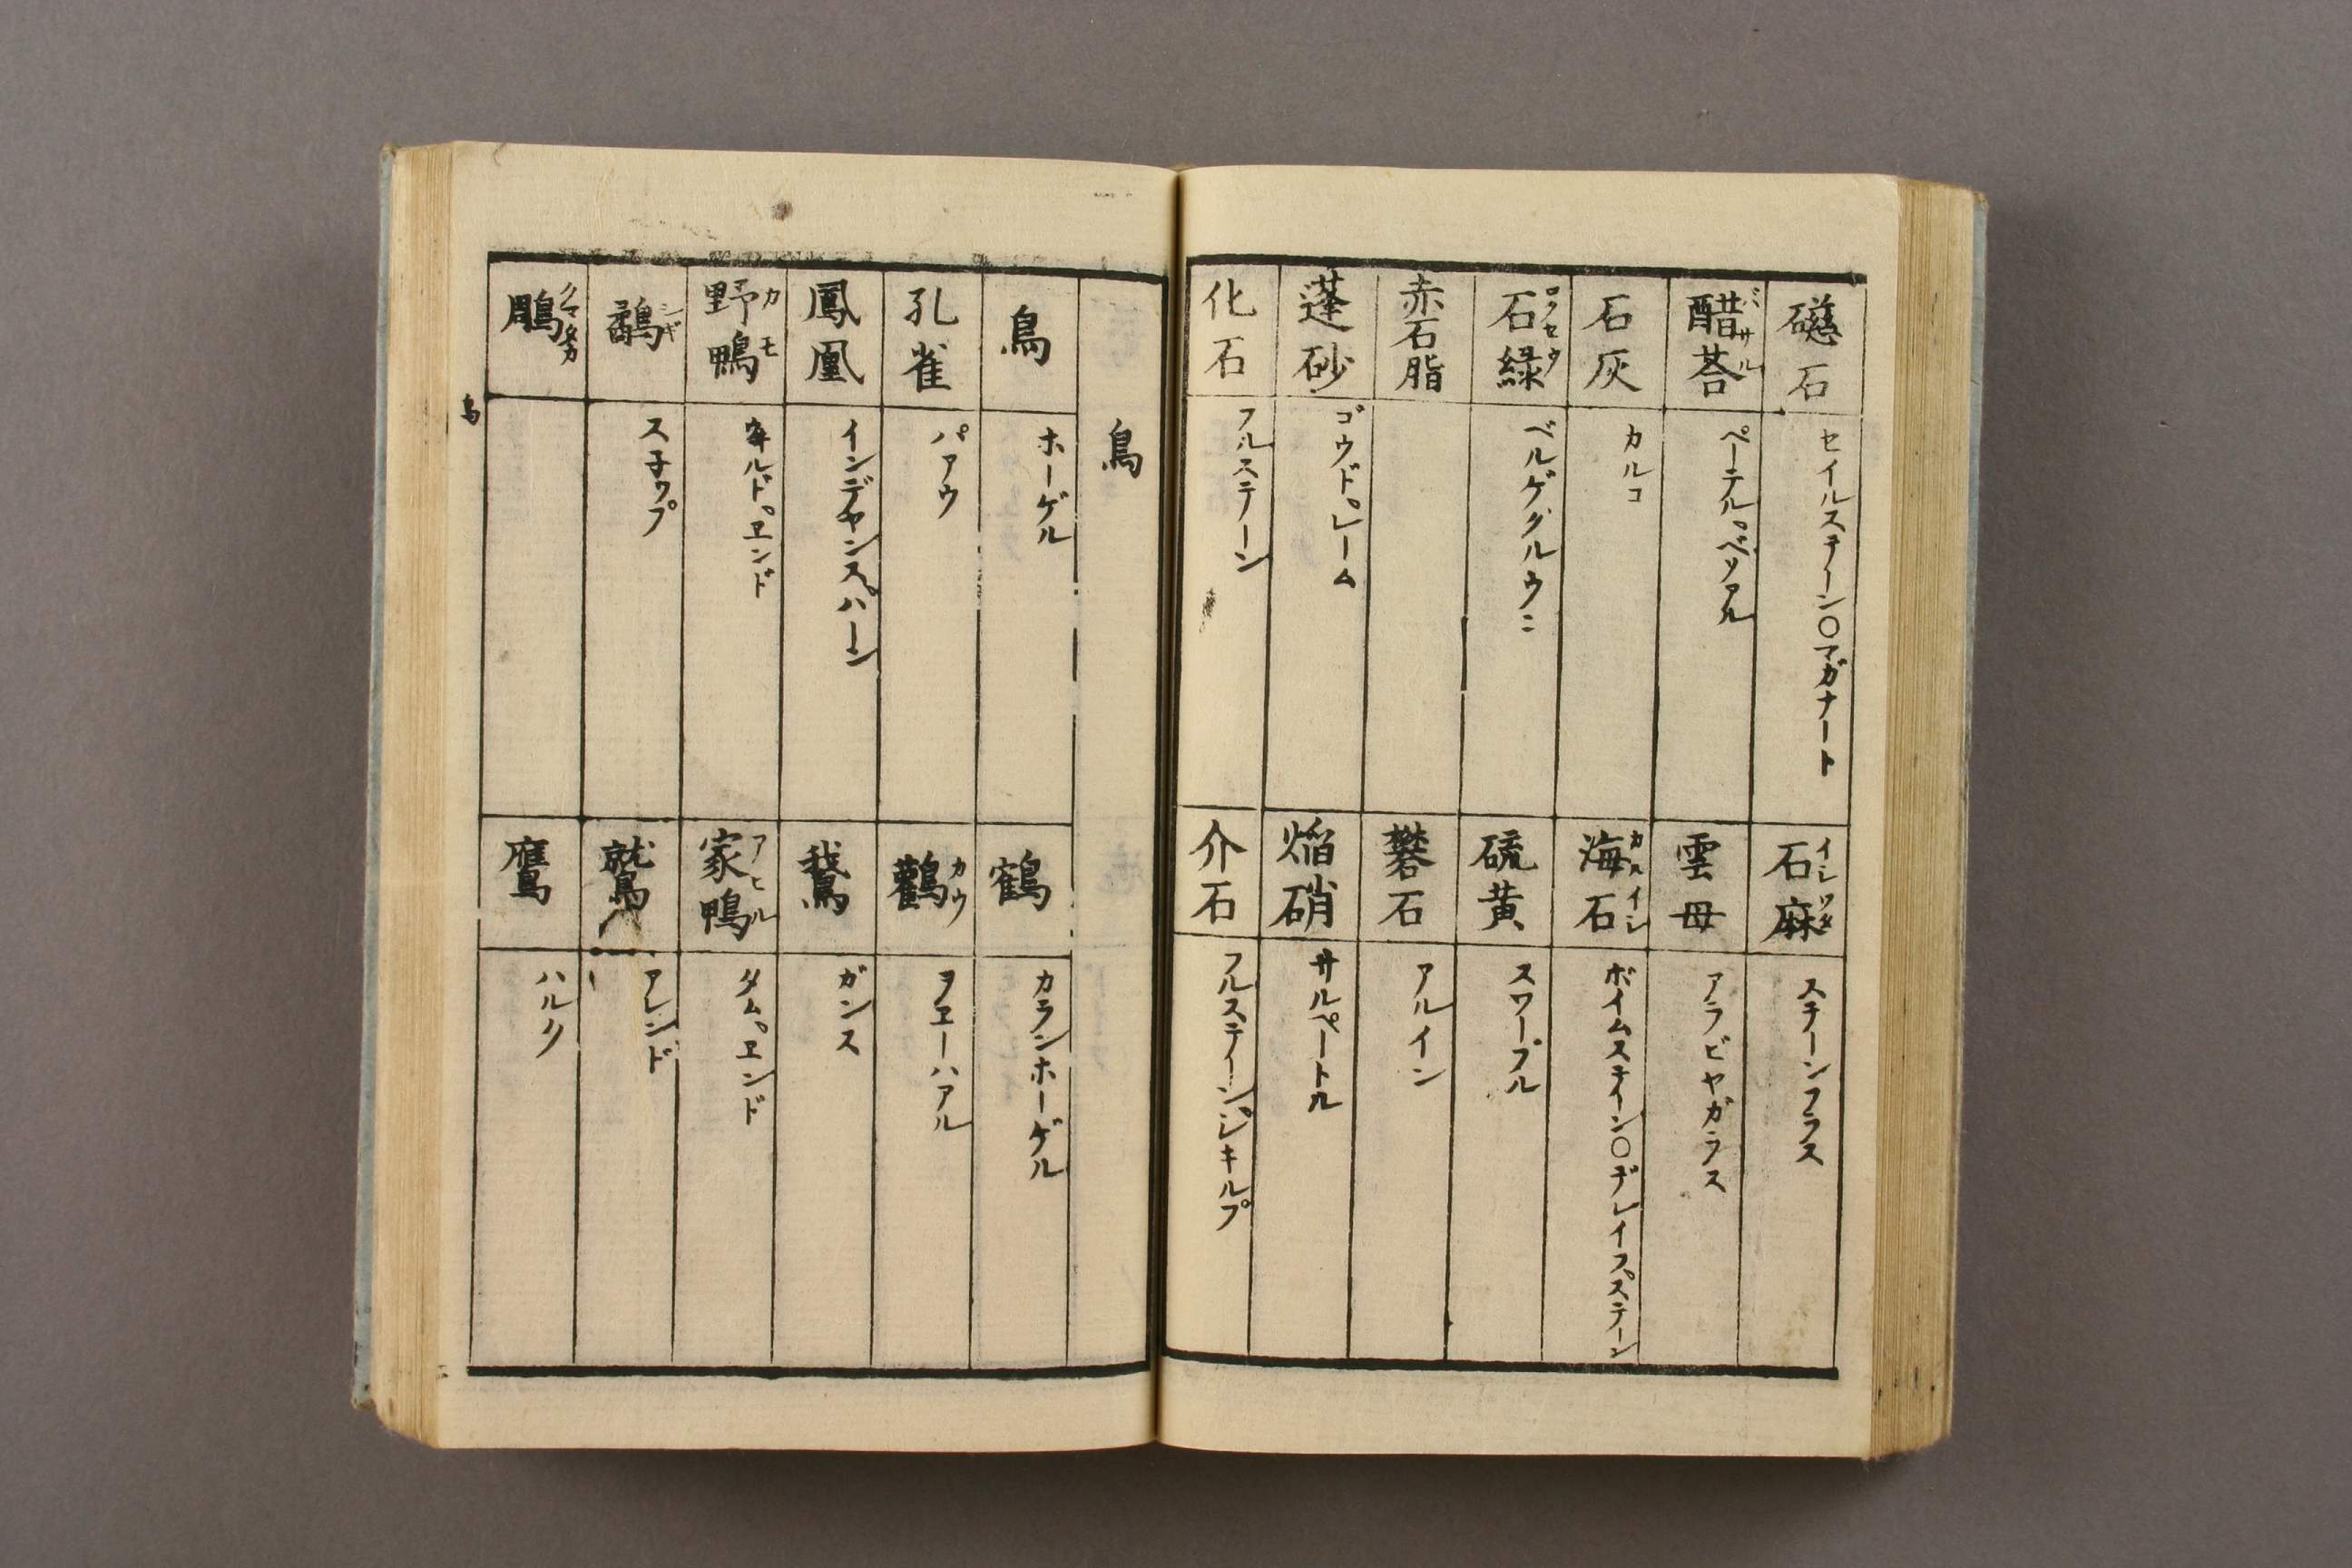 礠石 セイルステーン○マガナート
石麻 イシワタ ステーンフラス
醋荅 バサル ペーテル、ベソアル
雲母 アラビヤガラス
石灰 カルコ
海石 カルイシ ボイムステイン○ヂレイフ、ステーン
石緑 ロクセウ ベルゲグルウニ
硫黄 スワーフル
赤石脂
礬石 アルイン
蓬砂 ゴウド、レーム
焔硝 サルペートル
化石 フルステーン
介石 フルステーン、シキルプ
鳥
鳥 ホーゲル
鶴 カランホーゲル
孔雀 パアウ
鸛 カウ ヲヱーハアル
鳳凰 インデヤンス、ハーン
鵞 ガンス
野鴨 カモ ウヰルド、ヱンド
家鴨 アヒル タム、ヱンド
鷸 シギ ス子ツプ
鷲 アレンド
鵰 クマタカ
鷹 ハルク
鳥